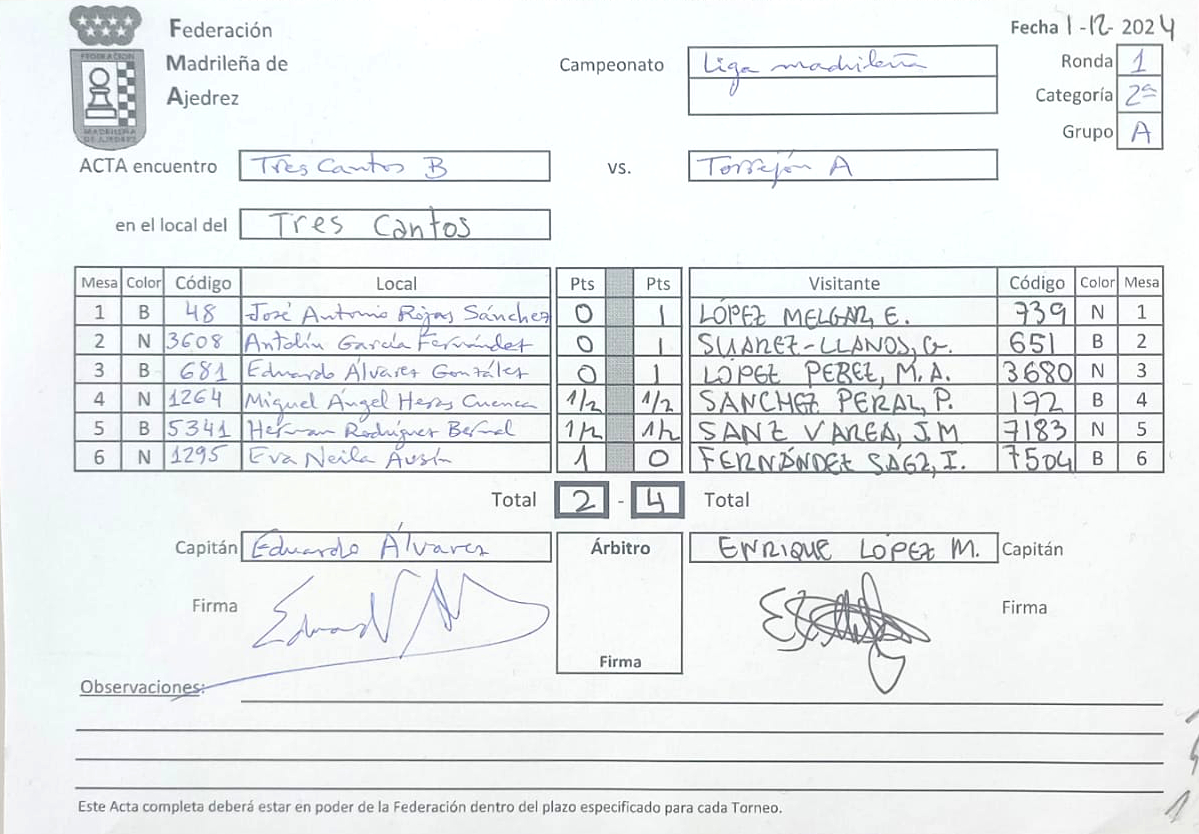 Federación Fecha 1-12-2024
Madrileña de Campeonato Liga madrileña Ronda 1
Ajedrez Categoría 2ª
FEDERACION MADRILEÑA DE AJEDREZ Grupo A
ACTA encuentro Tres Cantos B vs. Torrejón A
en el local del Tres Cantos
Mesa Color Código Local Pts Pts Visitante Código Color Mesa
1 B 48 José Antonio Rojas Sánchez 0 1 LÓPEZ MELGAR, E. 739 N 1
2 N 3608 Antolín García Fernández 0 1 SUAREZ-LLANOS, G. 651 B 2
3 B 681 Eduardo Álvarez González 0 1 LÓPEZ PEREZ, M.A. 3680 N 3
4 N 1264 Miguel Ángel Heras Cuenca 1/2 1/2 SANCHEZ PERAL, P. 192 B 4
5 B 5341 Hernan Rodríguez Bernal 1/2 1/2 SANZ VAREA, J.M 7183 N 5
6 N 1295 Eva Neila Ausín 1 0 FERNÁNDEZ SÁEZ, I. 7504 B 6
Total 2 - 4 Total
Capitán Eduardo Álvarez Árbitro ENRIQUE LÓPEZ M. Capitán
Firma Firma
Firma
Observaciones:
Este Acta completa deberá estar en poder de la Federación dentro del plazo especificado para cada Torneo.